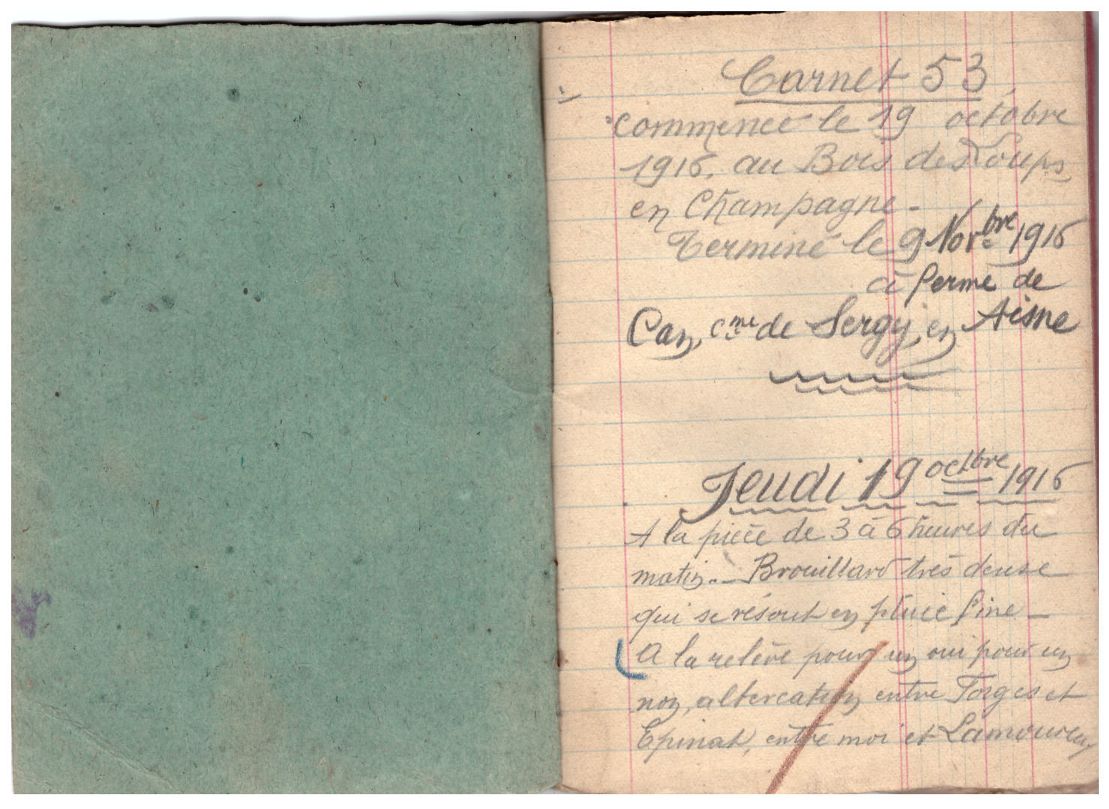 Carnet 53
commencé le 19 octobre
1916, au Bois des Loups,
en Champagne -
Terminé le 9 Novbre 1916
à ferme de
Can, cne de Sergy, en Aisne
Jeudi 19 octbre 1916
A la pièce de 3 à 6 heures du
matin. - Brouillard très dense
qui se résout en pluie fine -
A la relève pour un oui pour un
non, altercation entre Forges et
Epinat, entre moi et Lamoureux